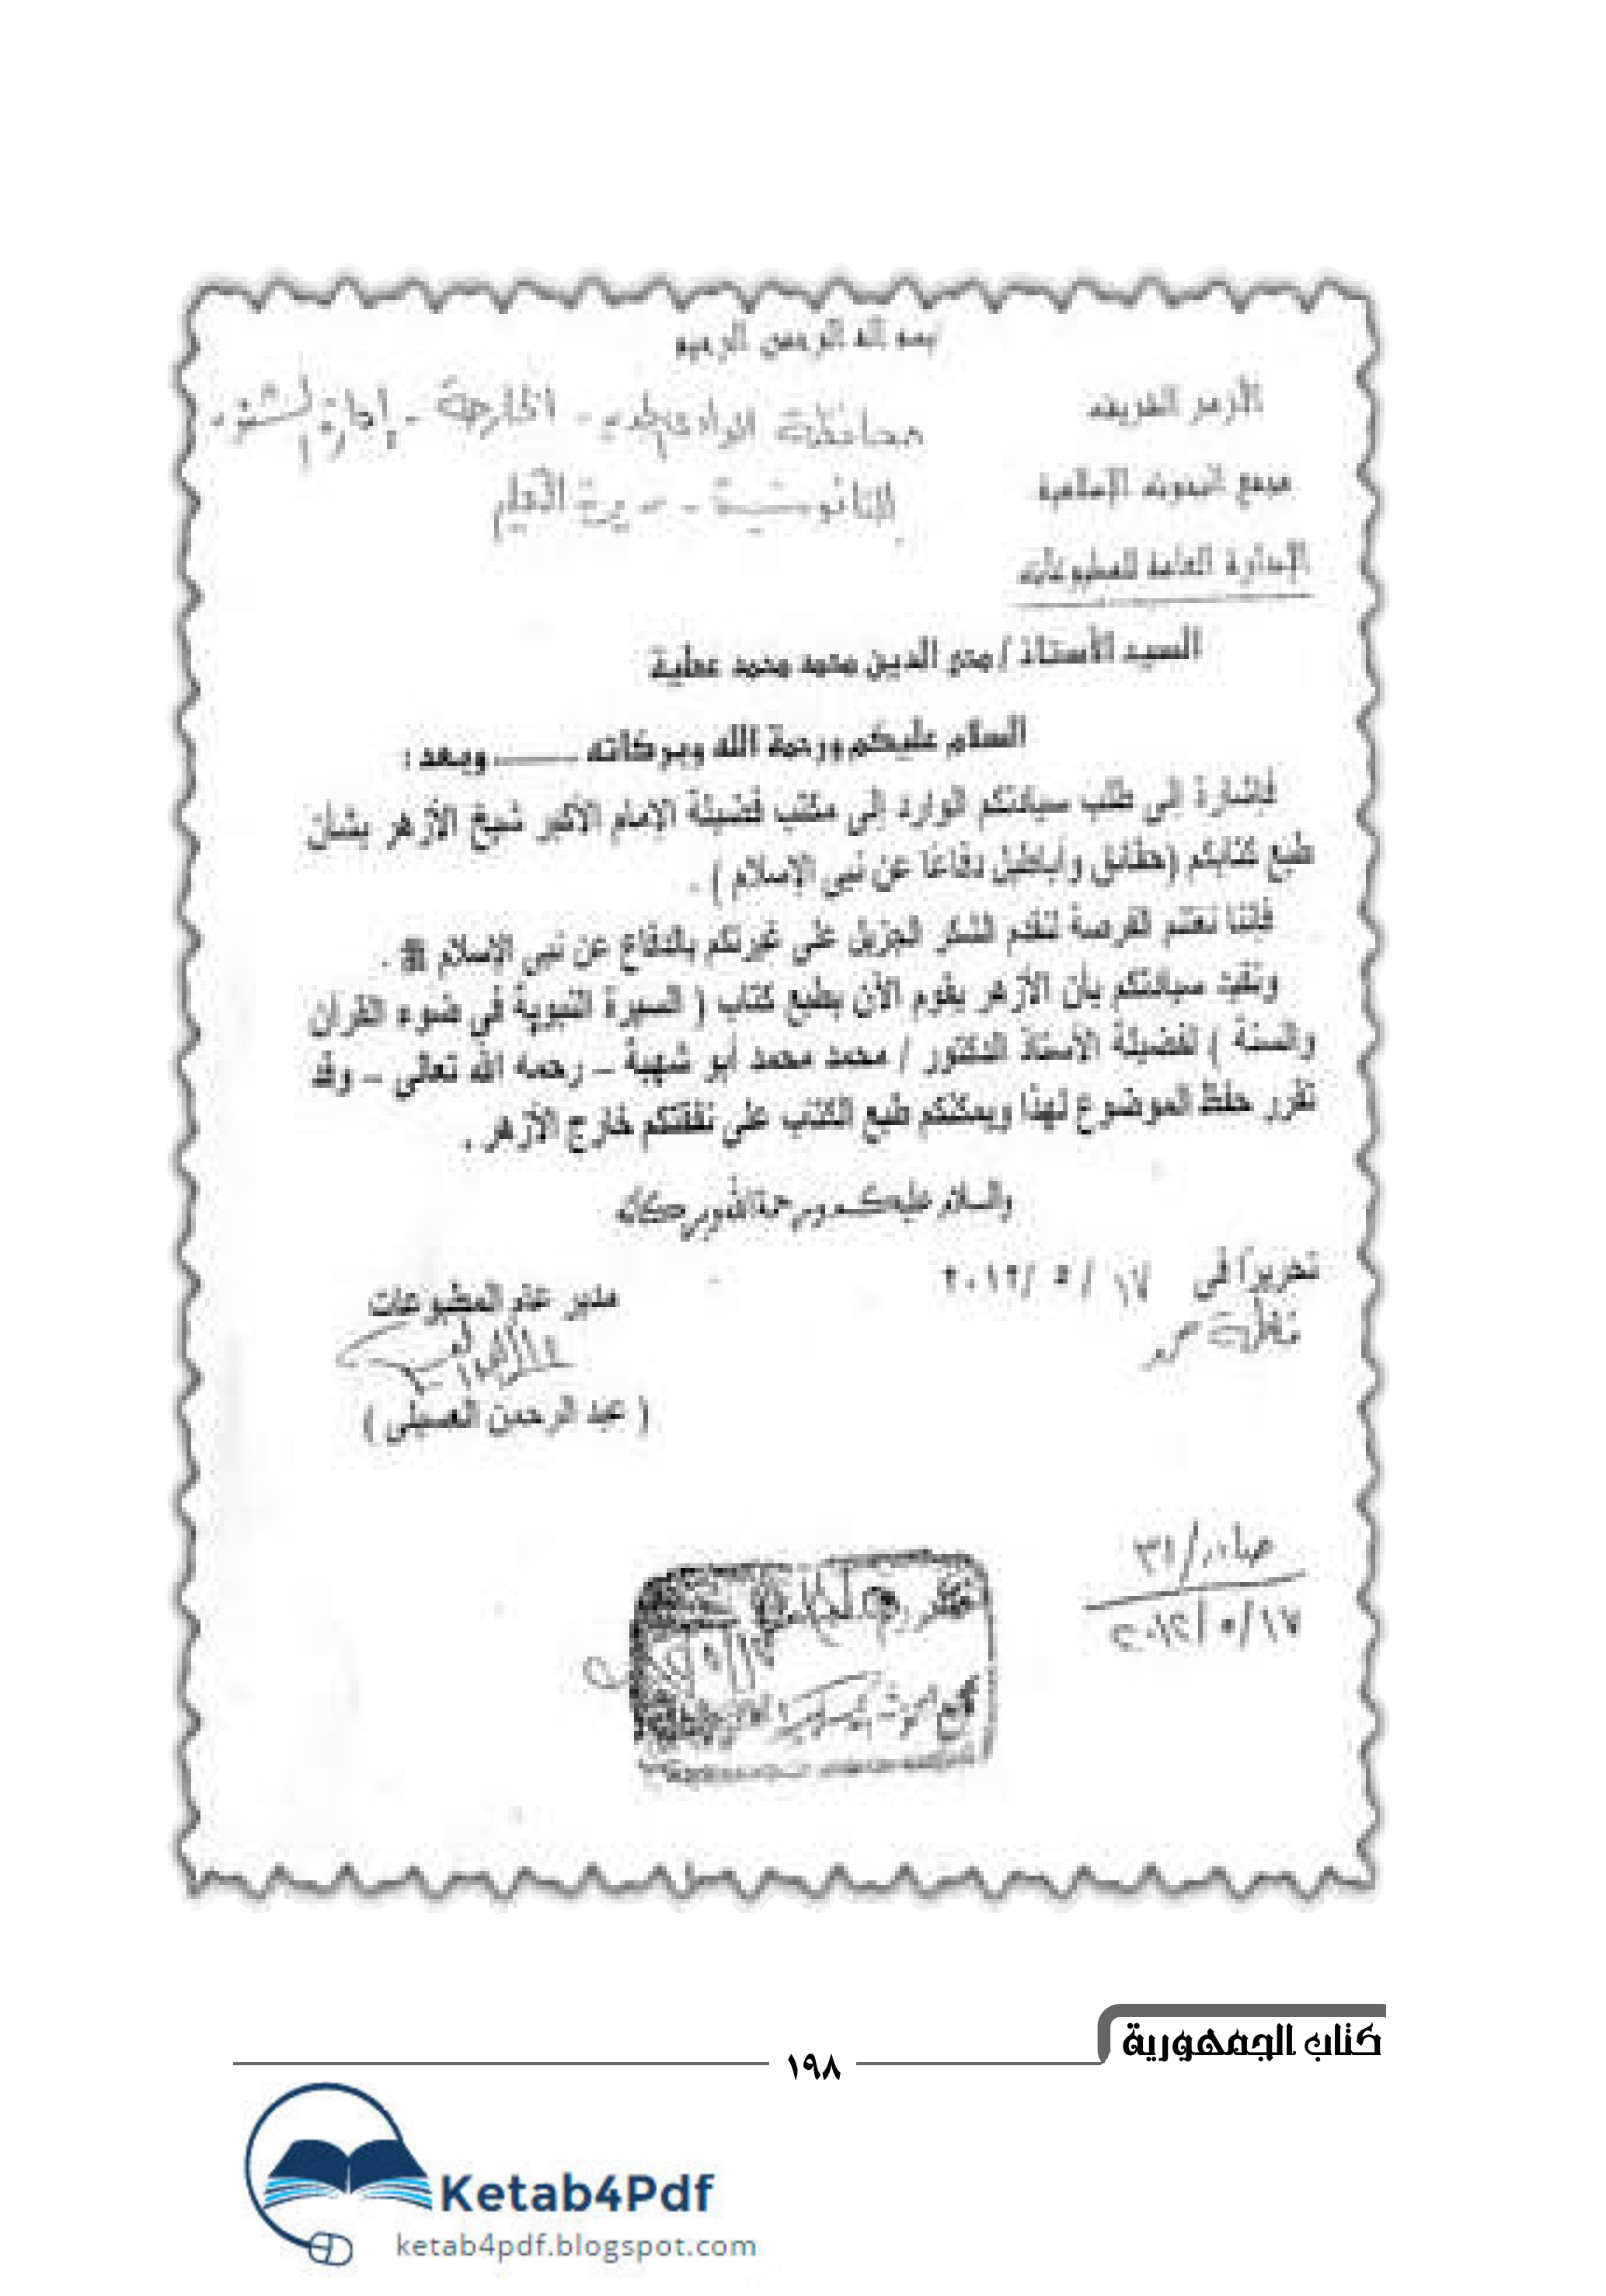 بسم الله الرحمن الرحيم
الأزهر الشريف
محافظة الوادى الجديد - الخارجة - إدارة الشئون
مجمع البحوث الإسلامية
القانونية - مديرية التعليم
الإدارة العامة للمطبوعات
السيد الأستاذ / محى الدين محمد محمد عطية
السلام عليكم ورحمة الله وبركاته ـــــــ وبعد :
فإشارة إلى طلب سيادتكم الوارد إلى مكتب فضيلة الإمام الأكبر شيخ الأزهر بشأن
طبع كتابكم (حقائق وأباطيل دفاعًا عن نبى الإسلام ) .
فإننا نغتنم الفرصة لنقدم الشكر الجزيل على غيرتكم بالدفاع عن نبى الإسلام ﷺ .
ونفيد سيادتكم بأن الأزهر يقوم الآن بطبع كتاب ( السيرة النبوية في ضوء القرآن
والسنة ) لفضيلة الأستاذ الدكتور / محمد محمد أبو شهبة – رحمه الله تعالى – وقد
تقرر حفظ الموضوع لهذا ويمكنكم طبع الكتاب على نفقتكم خارج الأزهر .
والسلام عليكم ورحمة الله وبركاته
تحريرًا فى ١٧ / ٥ / ٢٠١٢
مدير عام المطبوعات
( عبد الرحمن العسيلى )
صادر / ٣١
١٧ / ٥ / ٢٠١٢
كتاب الجمهورية
١٩٨
Ketab4Pdf
ketab4pdf.blogspot.com